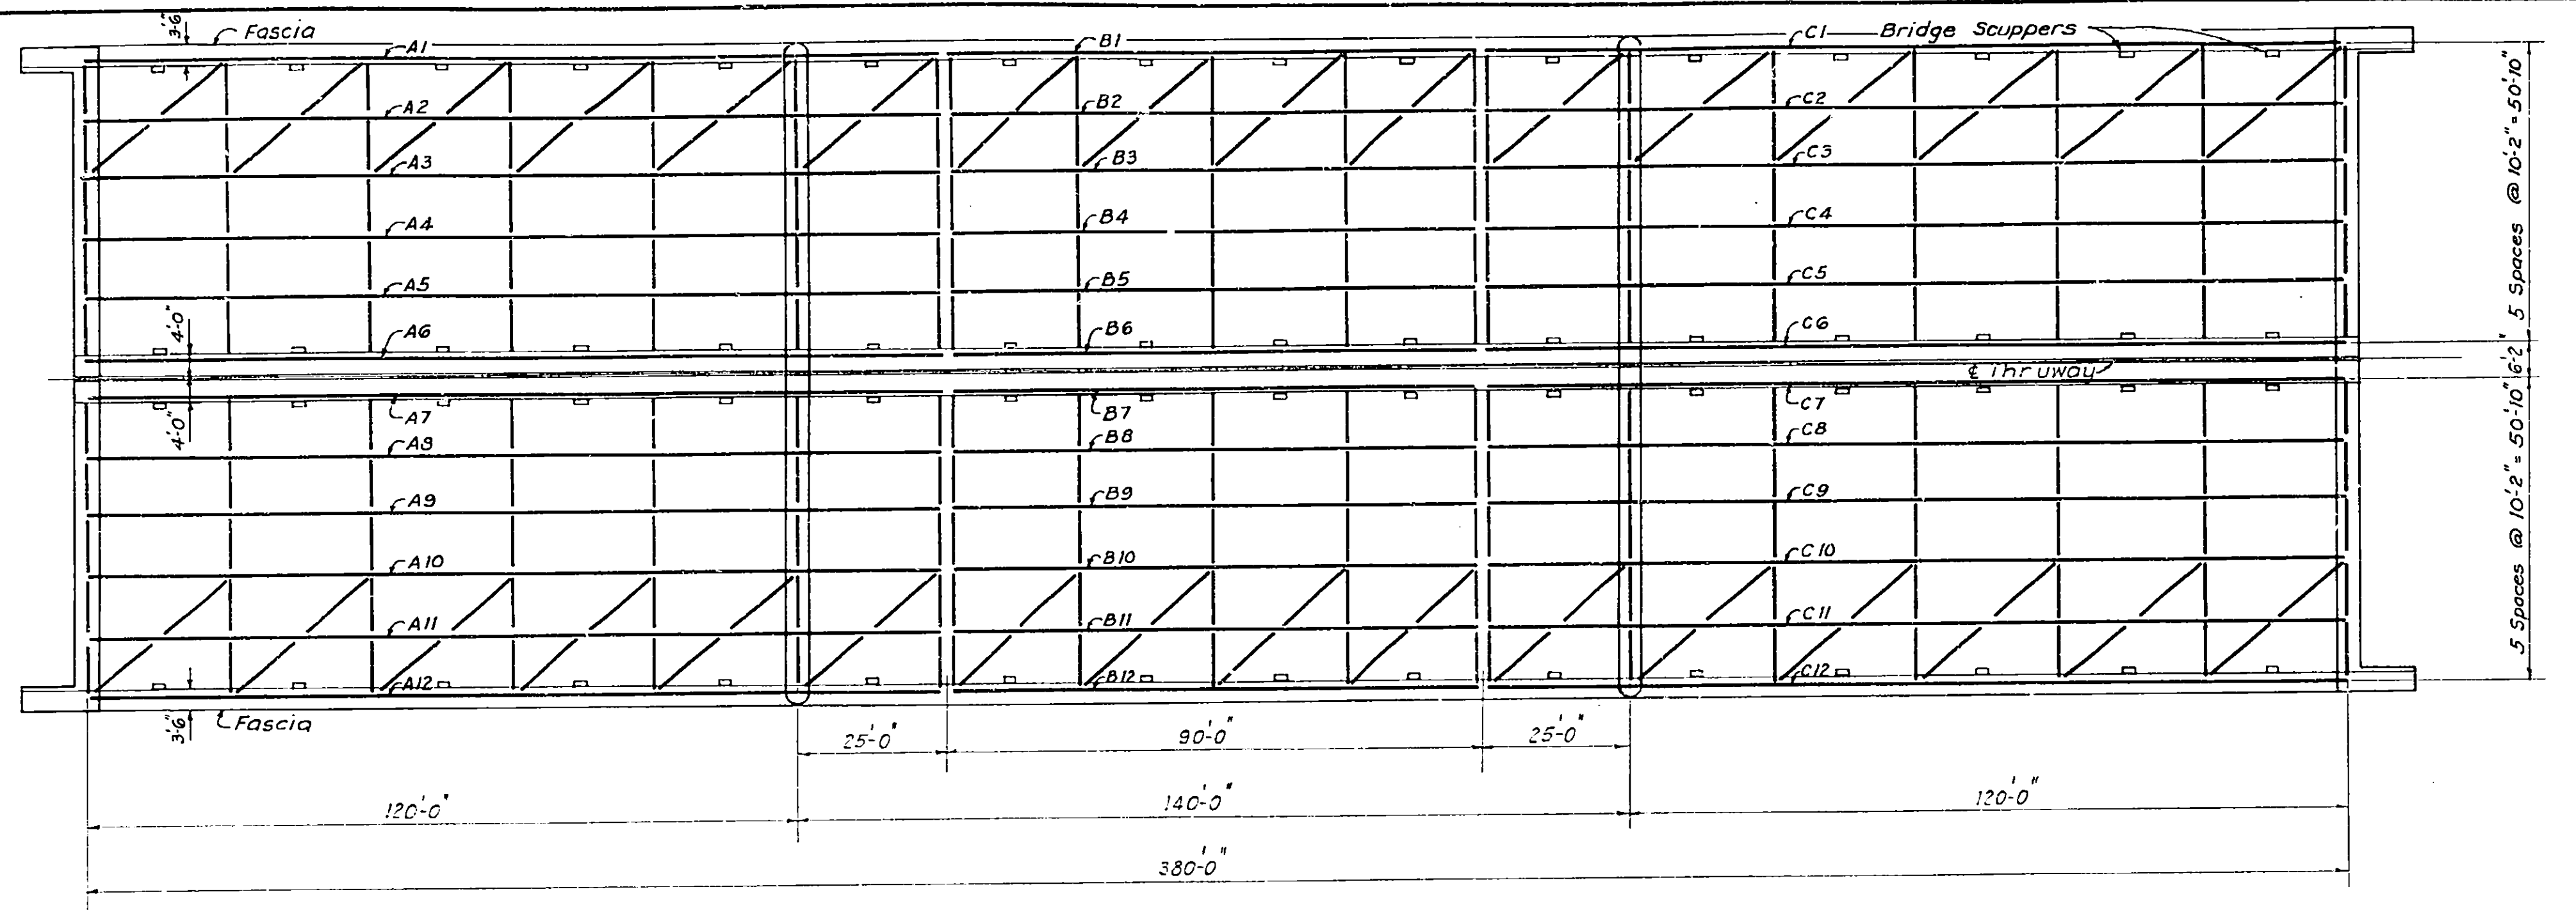 3'-6"
Fascia
A1
B1
C1
Bridge Scuppers
A2
B2
C2
A3
B3
C3
A4
B4
C4
A5
B5
C5
A6
B6
C6
4'-0"
4'-0"
℄ Thruway
A7
B7
C7
A8
B8
C8
A9
B9
C9
A10
B10
C10
A11
B11
C11
A12
B12
C12
3'-6"
Fascia
5 Spaces @ 10'-2" = 50'-10"
6'-2"
5 Spaces @ 10'-2" = 50'-10"
25'-0"
90'-0"
25'-0"
120'-0"
140'-0"
120'-0"
380'-0"